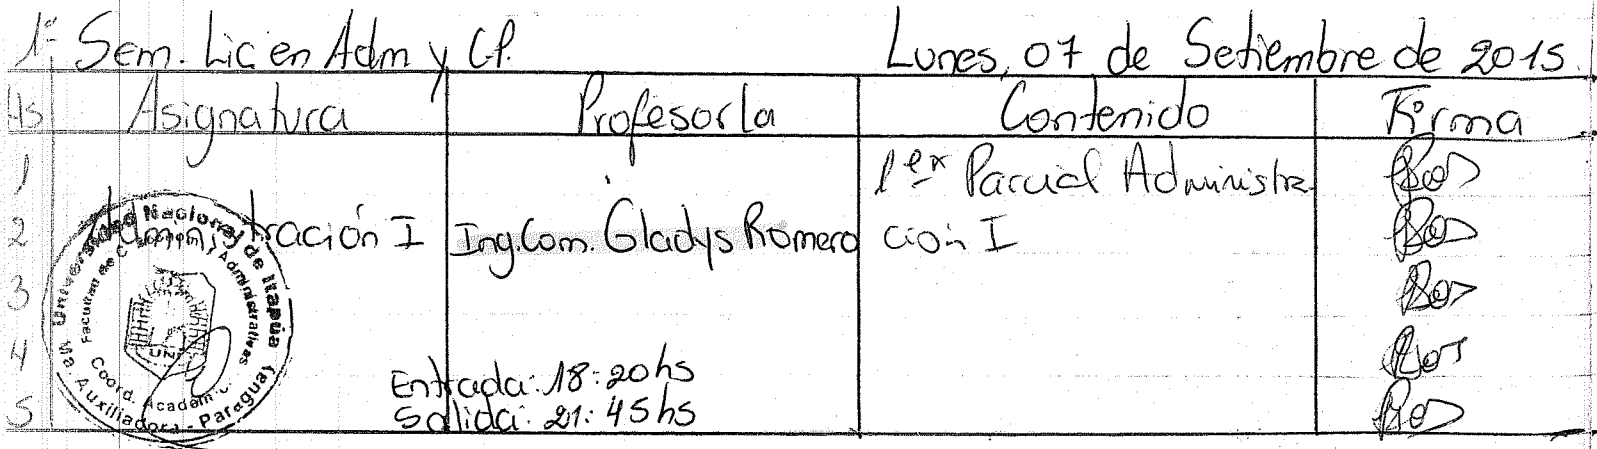 1º Sem. Lic en Adm y C.P. Lunes, 07 de Setiembre de 2015.
Hs Asignatura Profesor/a Contenido Firma
1 1er Parcial Administra
2 Administración I Ing.Com. Gladys Romero ción I
3
4
Entrada: 18:20hs
5 Salida: 21:45hs
Universidad Nacional de Itapúa
Facultad de Administrativas
UNI
Coord. Académic
Ma. Auxiliadora - Paraguay